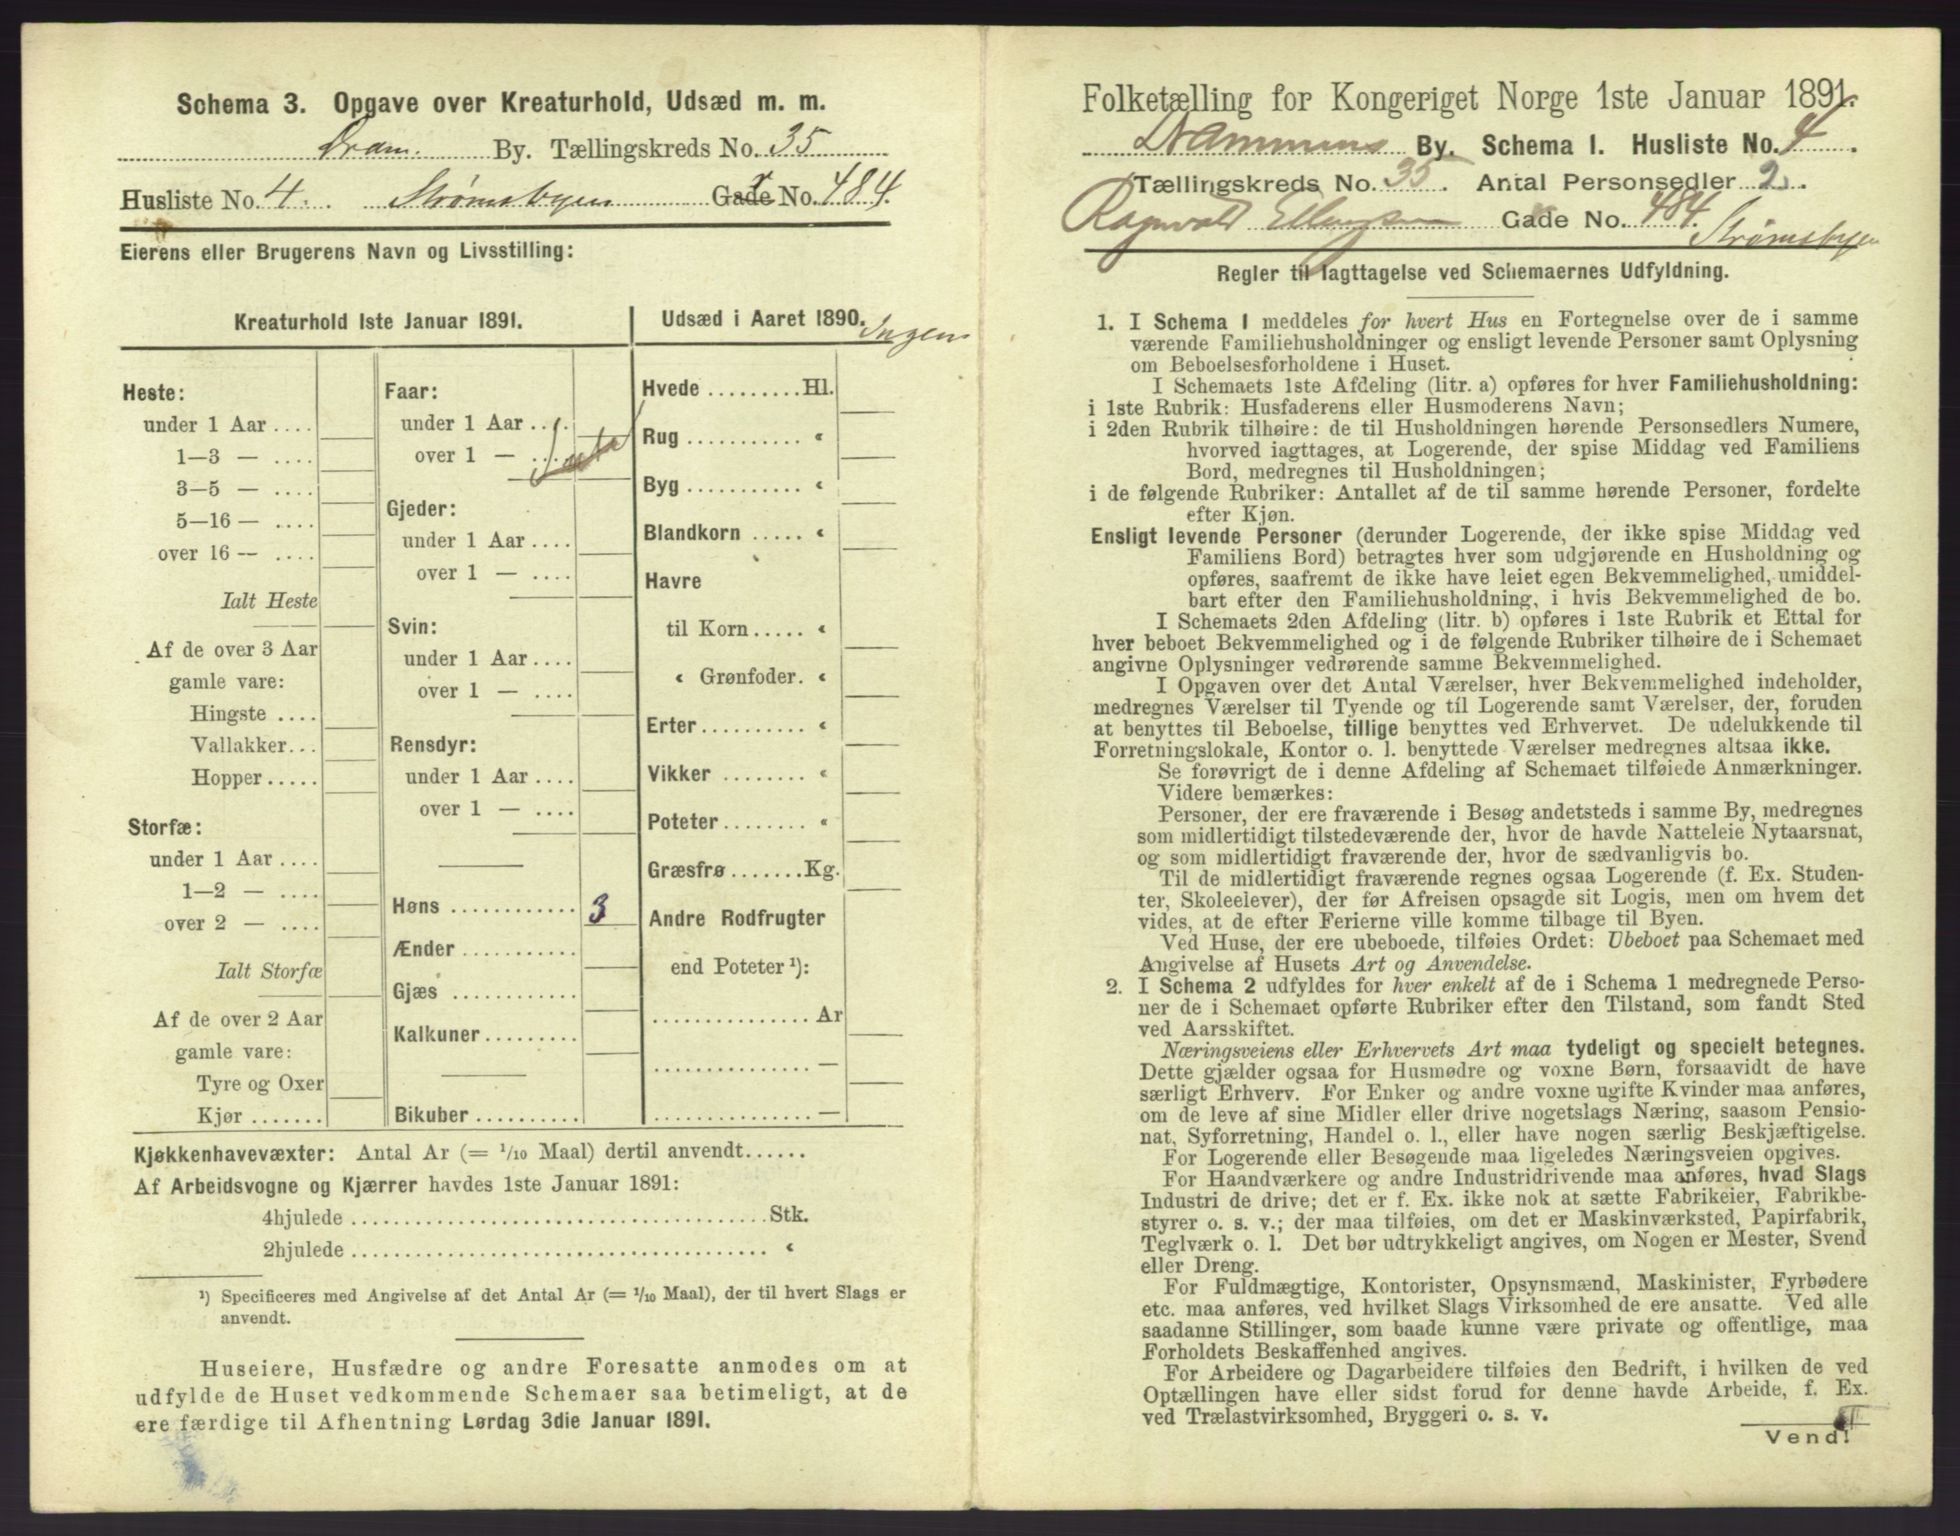 Schema 3. Opgave over Kreaturhold, Udsæd m. m.
Dram. By. Tællingskreds No. 35
Husliste No. 4. Strømsbyen Gade No. 484.
Eierens eller Brugerens Navn og Livsstilling:
Kreaturhold 1ste Januar 1891.
Heste:
under 1 Aar ....
1—3 — ....
3—5 — ....
5—16 — ....
over 16 — ....
Ialt Heste
Af de over 3 Aar
gamle vare:
Hingste ....
Vallakker...
Hopper.....
Storfæ:
under 1 Aar ....
1—2 — ....
over 2 — ....
Ialt Storfæ
Af de over 2 Aar
gamle vare:
Tyre og Oxer
Kjør .......
Faar:
under 1 Aar ....
over 1 — ....
Gjeder:
under 1 Aar ....
over 1 — ....
Svin:
under 1 Aar ....
over 1 — ....
Rensdyr:
under 1 Aar ....
over 1 — ....
Høns ............ 3
Ænder ...........
Gjæs ............
Kalkuner.........
Bikuber ..........
Udsæd i Aaret 1890. Ingen
Hvede .........Hl.
Rug ........... «
Byg ........... «
Blandkorn ..... «
Havre
til Korn..... «
« Grønfoder. «
Erter.......... «
Vikker ........ «
Poteter........ «
Græsfrø .......Kg.
Andre Rodfrugter
end Poteter ¹):
............... Ar
............... —
............... —
Kjøkkenhavevæxter: Antal Ar (= 1/10 Maal) dertil anvendt......
Af Arbeidsvogne og Kjærrer havdes 1ste Januar 1891:
4hjulede ........................................Stk.
2hjulede ........................................ «
¹) Specificeres med Angivelse af det Antal Ar (= 1/10 Maal), der til hvert Slags er
anvendt.
Huseiere, Husfædre og andre Foresatte anmodes om at
udfylde de Huset vedkommende Schemaer saa betimeligt, at de
ere færdige til Afhentning Lørdag 3die Januar 1891.
Folketælling for Kongeriget Norge 1ste Januar 1891.
Drammens By. Schema 1. Husliste No. 4.
Tællingskreds No. 35. Antal Personsedler 2.
Ragnvald Ellingsen Gade No. 484. Strømsbyen
Regler til Iagttagelse ved Schemaernes Udfyldning.
1. I Schema 1 meddeles for hvert Hus en Fortegnelse over de i samme
værende Familiehusholdninger og ensligt levende Personer samt Oplysning
om Beboelsesforholdene i Huset.
I Schemaets 1ste Afdeling (litr. a) opføres for hver Familiehusholdning:
i 1ste Rubrik: Husfaderens eller Husmoderens Navn;
i 2den Rubrik tilhøire: de til Husholdningen hørende Personsedlers Numere,
hvorved iagttages, at Logerende, der spise Middag ved Familiens
Bord, medregnes til Husholdningen;
i de følgende Rubriker: Antallet af de til samme hørende Personer, fordelte
efter Kjøn.
Ensligt levende Personer (derunder Logerende, der ikke spise Middag ved
Familiens Bord) betragtes hver som udgjørende en Husholdning og
opføres, saafremt de ikke have leiet egen Bekvemmelighed, umiddel-
bart efter den Familiehusholdning, i hvis Bekvemmelighed de bo.
I Schemaets 2den Afdeling (litr. b) opføres i 1ste Rubrik et Ettal for
hver beboet Bekvemmelighed og i de følgende Rubriker tilhøire de i Schemaet
angivne Oplysninger vedrørende samme Bekvemmelighed.
I Opgaven over det Antal Værelser, hver Bekvemmelighed indeholder,
medregnes Værelser til Tyende og til Logerende samt Værelser, der, foruden
at benyttes til Beboelse, tillige benyttes ved Erhvervet. De udelukkende til
Forretningslokale, Kontor o. l. benyttede Værelser medregnes altsaa ikke.
Se forøvrigt de i denne Afdeling af Schemaet tilføiede Anmærkninger.
Videre bemærkes:
Personer, der ere fraværende i Besøg andetsteds i samme By, medregnes
som midlertidigt tilstedeværende der, hvor de havde Natteleie Nytaarsnat,
og som midlertidigt fraværende der, hvor de sædvanligvis bo.
Til de midlertidigt fraværende regnes ogsaa Logerende (f. Ex. Studen-
ter, Skoleelever), der før Afreisen opsagde sit Logis, men om hvem det
vides, at de efter Ferierne ville komme tilbage til Byen.
Ved Huse, der ere ubeboede, tilføies Ordet: Ubeboet paa Schemaet med
Angivelse af Husets Art og Anvendelse.
2. I Schema 2 udfyldes for hver enkelt af de i Schema 1 medregnede Perso-
ner de i Schemaet opførte Rubriker efter den Tilstand, som fandt Sted
ved Aarsskiftet.
Næringsveiens eller Erhvervets Art maa tydeligt og specielt betegnes.
Dette gjælder ogsaa for Husmødre og voxne Børn, forsaavidt de have
særligt Erhverv. For Enker og andre voxne ugifte Kvinder maa anføres,
om de leve af sine Midler eller drive nogetslags Næring, saasom Pensio-
nat, Syforretning, Handel o. l., eller have nogen særlig Beskjæftigelse.
For Logerende eller Besøgende maa ligeledes Næringsveien opgives.
For Haandværkere og andre Industridrivende maa anføres, hvad Slags
Industri de drive; det er f. Ex. ikke nok at sætte Fabrikeier, Fabrikbe-
styrer o. s. v.; der maa tilføies, om det er Maskinværksted, Papirfabrik,
Teglværk o. l. Det bør udtrykkeligt angives, om Nogen er Mester, Svend
eller Dreng.
For Fuldmægtige, Kontorister, Opsynsmænd, Maskinister, Fyrbødere
etc. maa anføres, ved hvilket Slags Virksomhed de ere ansatte. Ved alle
saadanne Stillinger, som baade kunne være private og offentlige, maa
Forholdets Beskaffenhed angives.
For Arbeidere og Dagarbeidere tilføies den Bedrift, i hvilken de ved
Optællingen have eller sidst forud for denne havde Arbeide, f. Ex.
ved Trælastvirksomhed, Bryggeri o. s. v.
Vend!